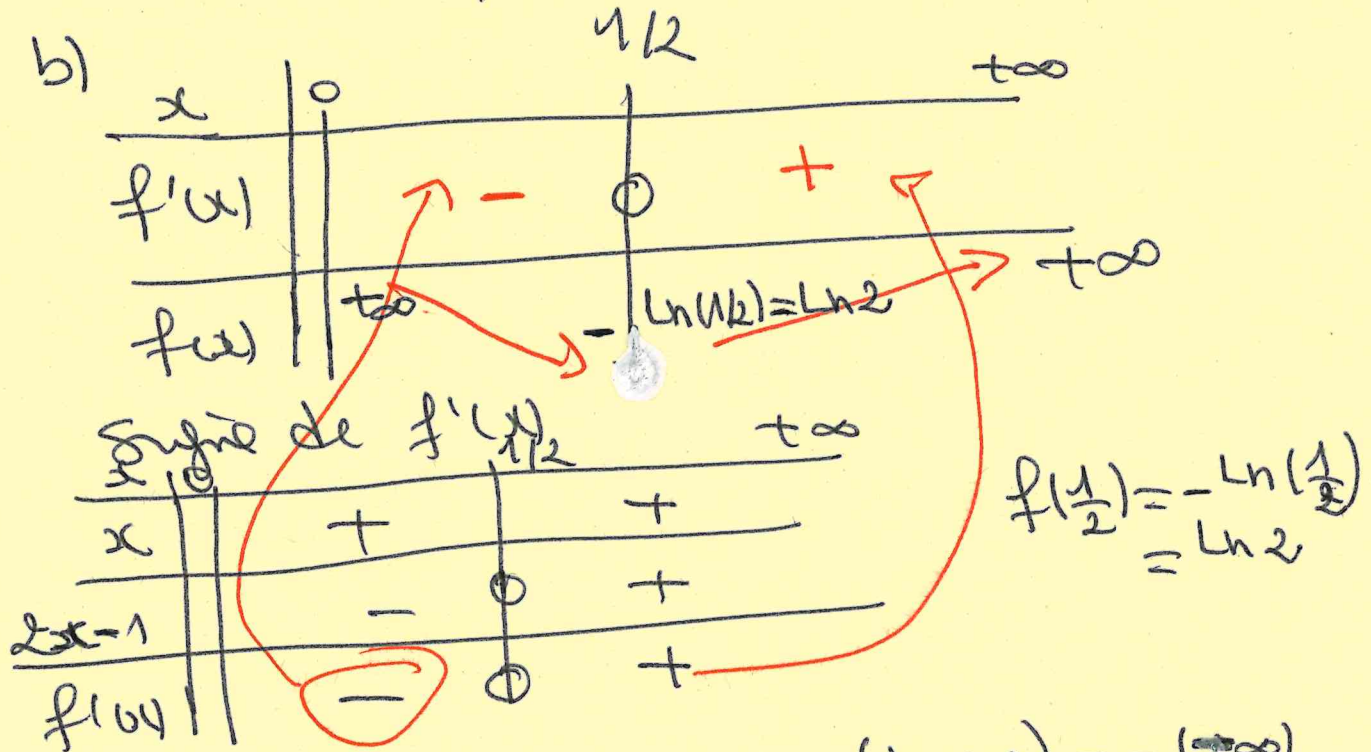 b)
1/2
x 0 +∞
f'(x) - 0 +
f(x) +∞ - Ln(1/2)=Ln2 +∞
Signe de f'(x)
x 0 1/2 +∞
x + +
2x-1 - 0 +
f'(x) - 0 +
f(1/2)=-Ln(1/2)
= Ln2